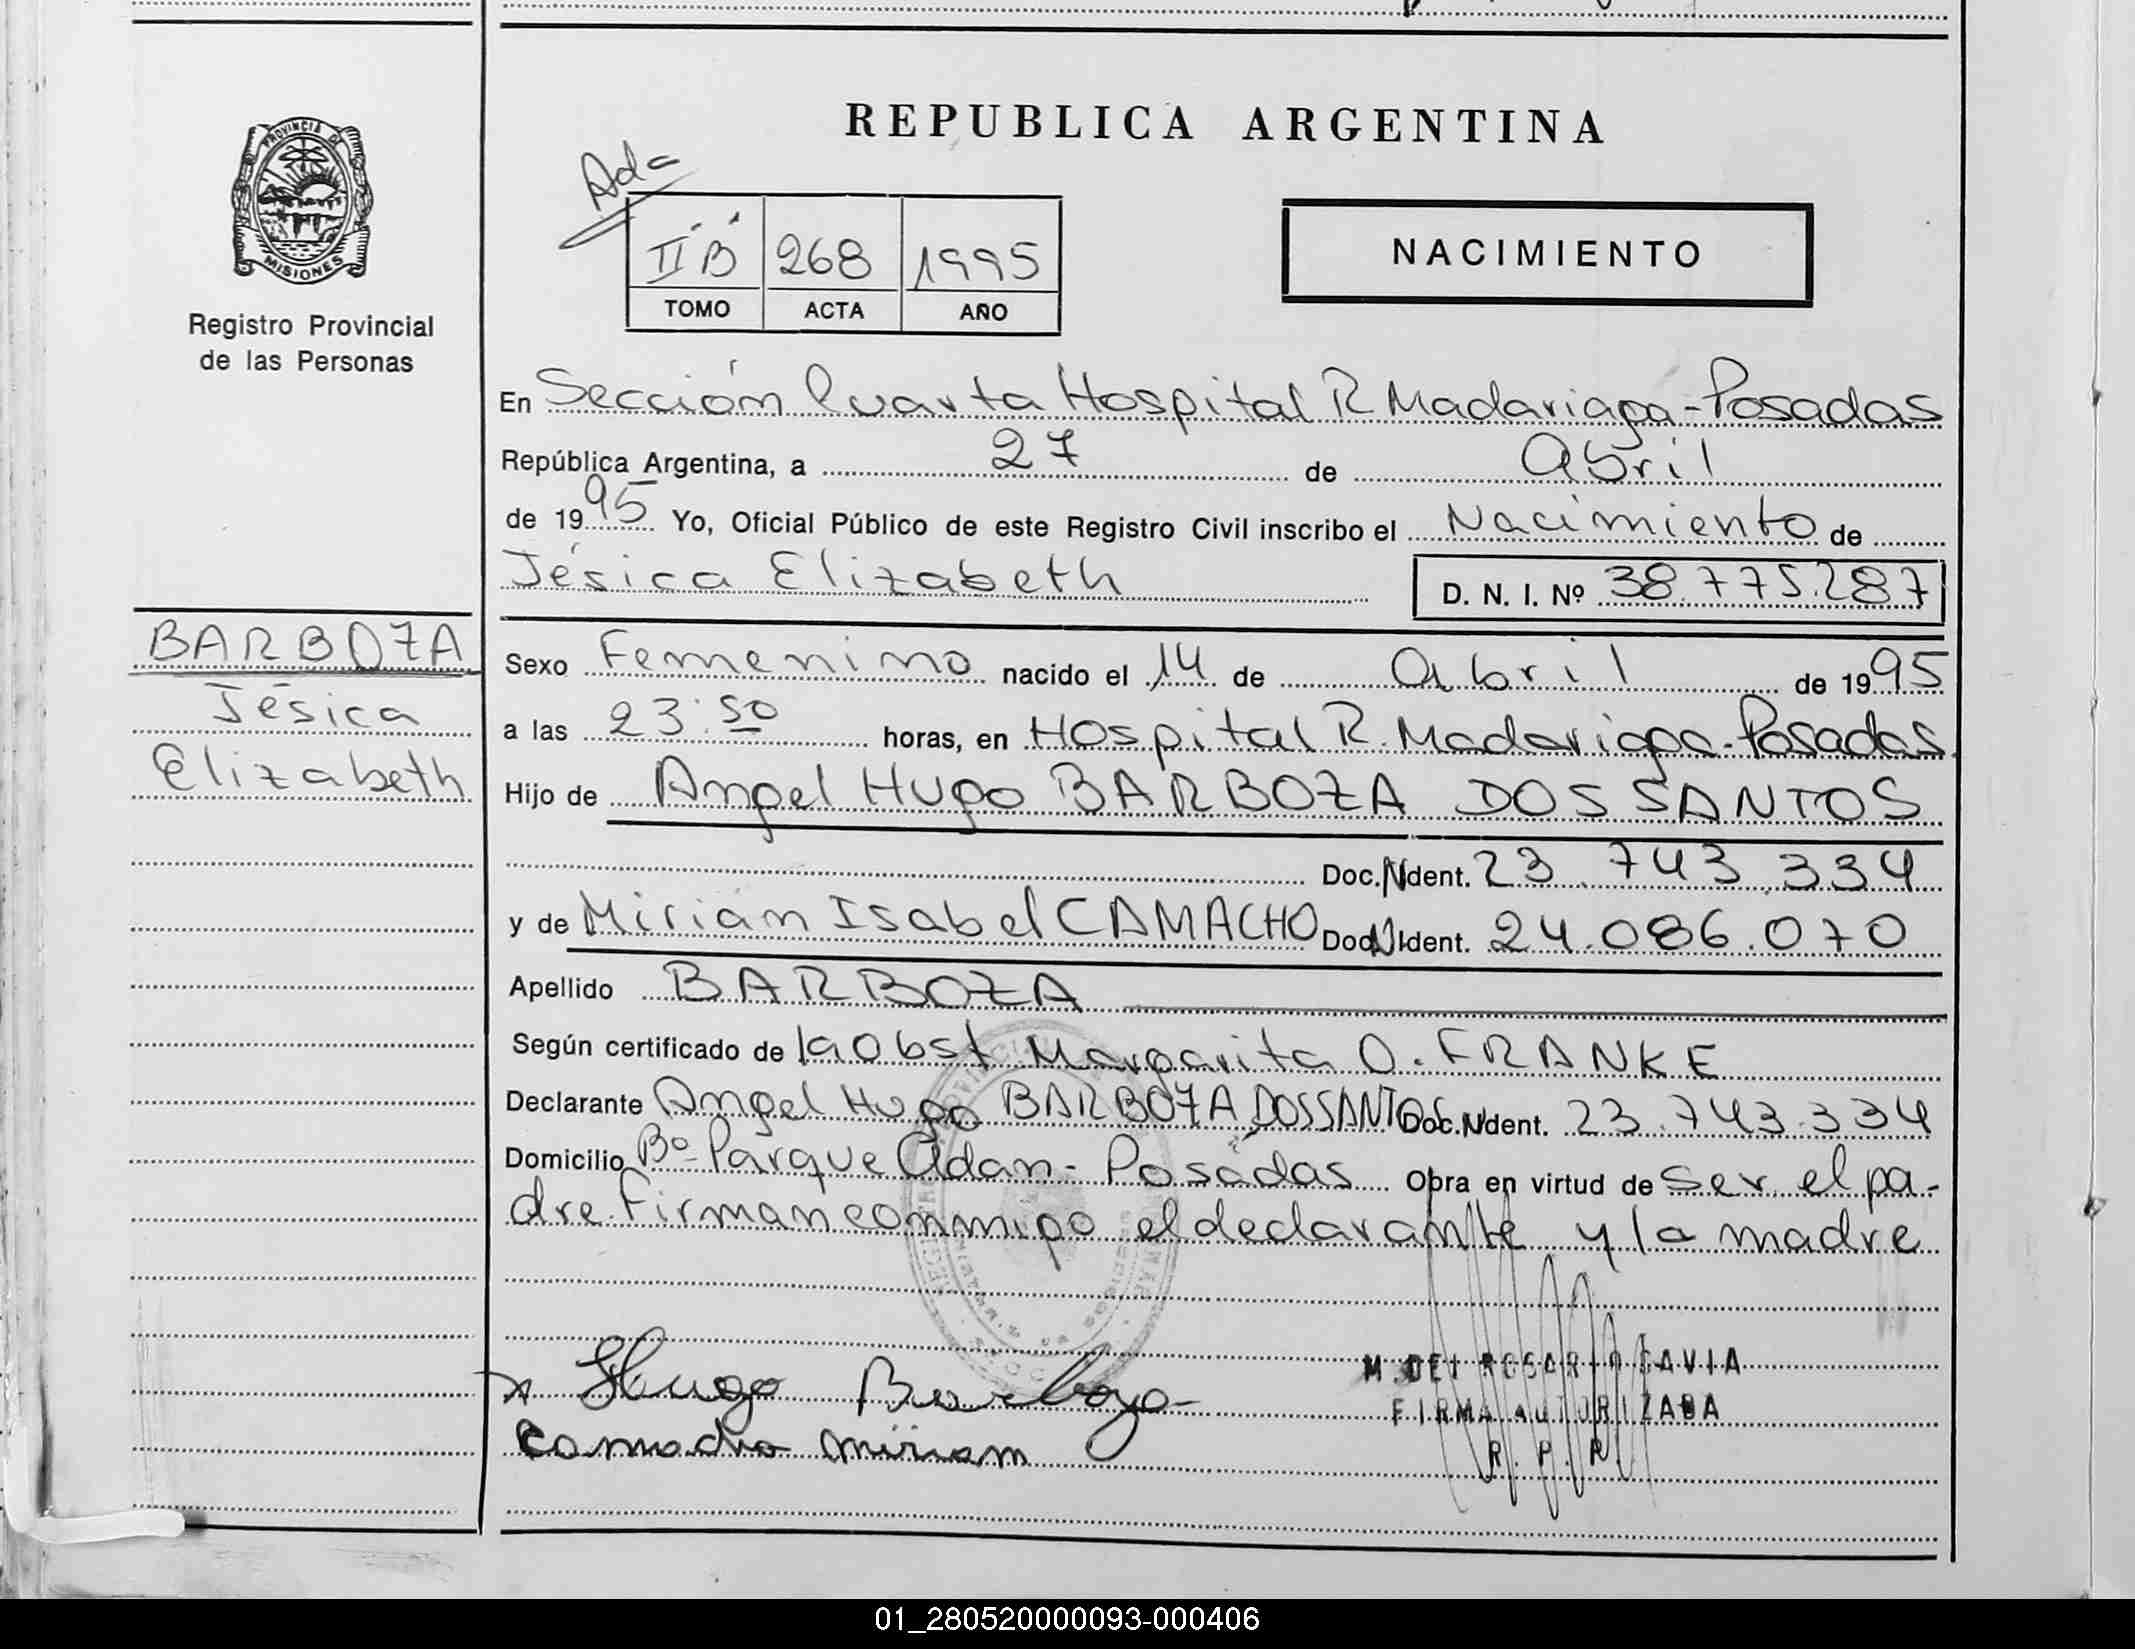 REPUBLICA ARGENTINA
PROVINCIA DE
MISIONES
Registro Provincial
de las Personas
Ada
II "B" 268 1995
TOMO ACTA AÑO
NACIMIENTO
En Sección Cuarta Hospital R Madariaga - Posadas
República Argentina, a 27 de Abril
de 1995 Yo, Oficial Público de este Registro Civil inscribo el Nacimiento de
Jésica Elizabeth D. N. I. Nº 38.775.287
BARBOZA
Jésica
Elizabeth
Sexo Femenino nacido el 14 de Abril de 1995
a las 23:50 horas, en Hospital R. Madariaga - Posadas.
Hijo de Angel Hugo BARBOZA DOS SANTOS
Doc. N Ident. 23.743.334
y de Mirián Isabel CAMACHO Doc. N Ident. 24.086.070
Apellido BARBOZA
Según certificado de la Obst Margarita O. FRANKE
Declarante Angel Hugo BARBOZA DOS SANTOS Doc. N Ident. 23.743.334
Domicilio Bº Parque Adan - Posadas Obra en virtud de ser el pa-
dre. Firman conmigo el declarante y la madre
x Hugo Barboza
Camacho Miriam
M. DEL ROSARIO GAVIA
FIRMA AUTORIZADA
R. P. P.
01_280520000093-000406